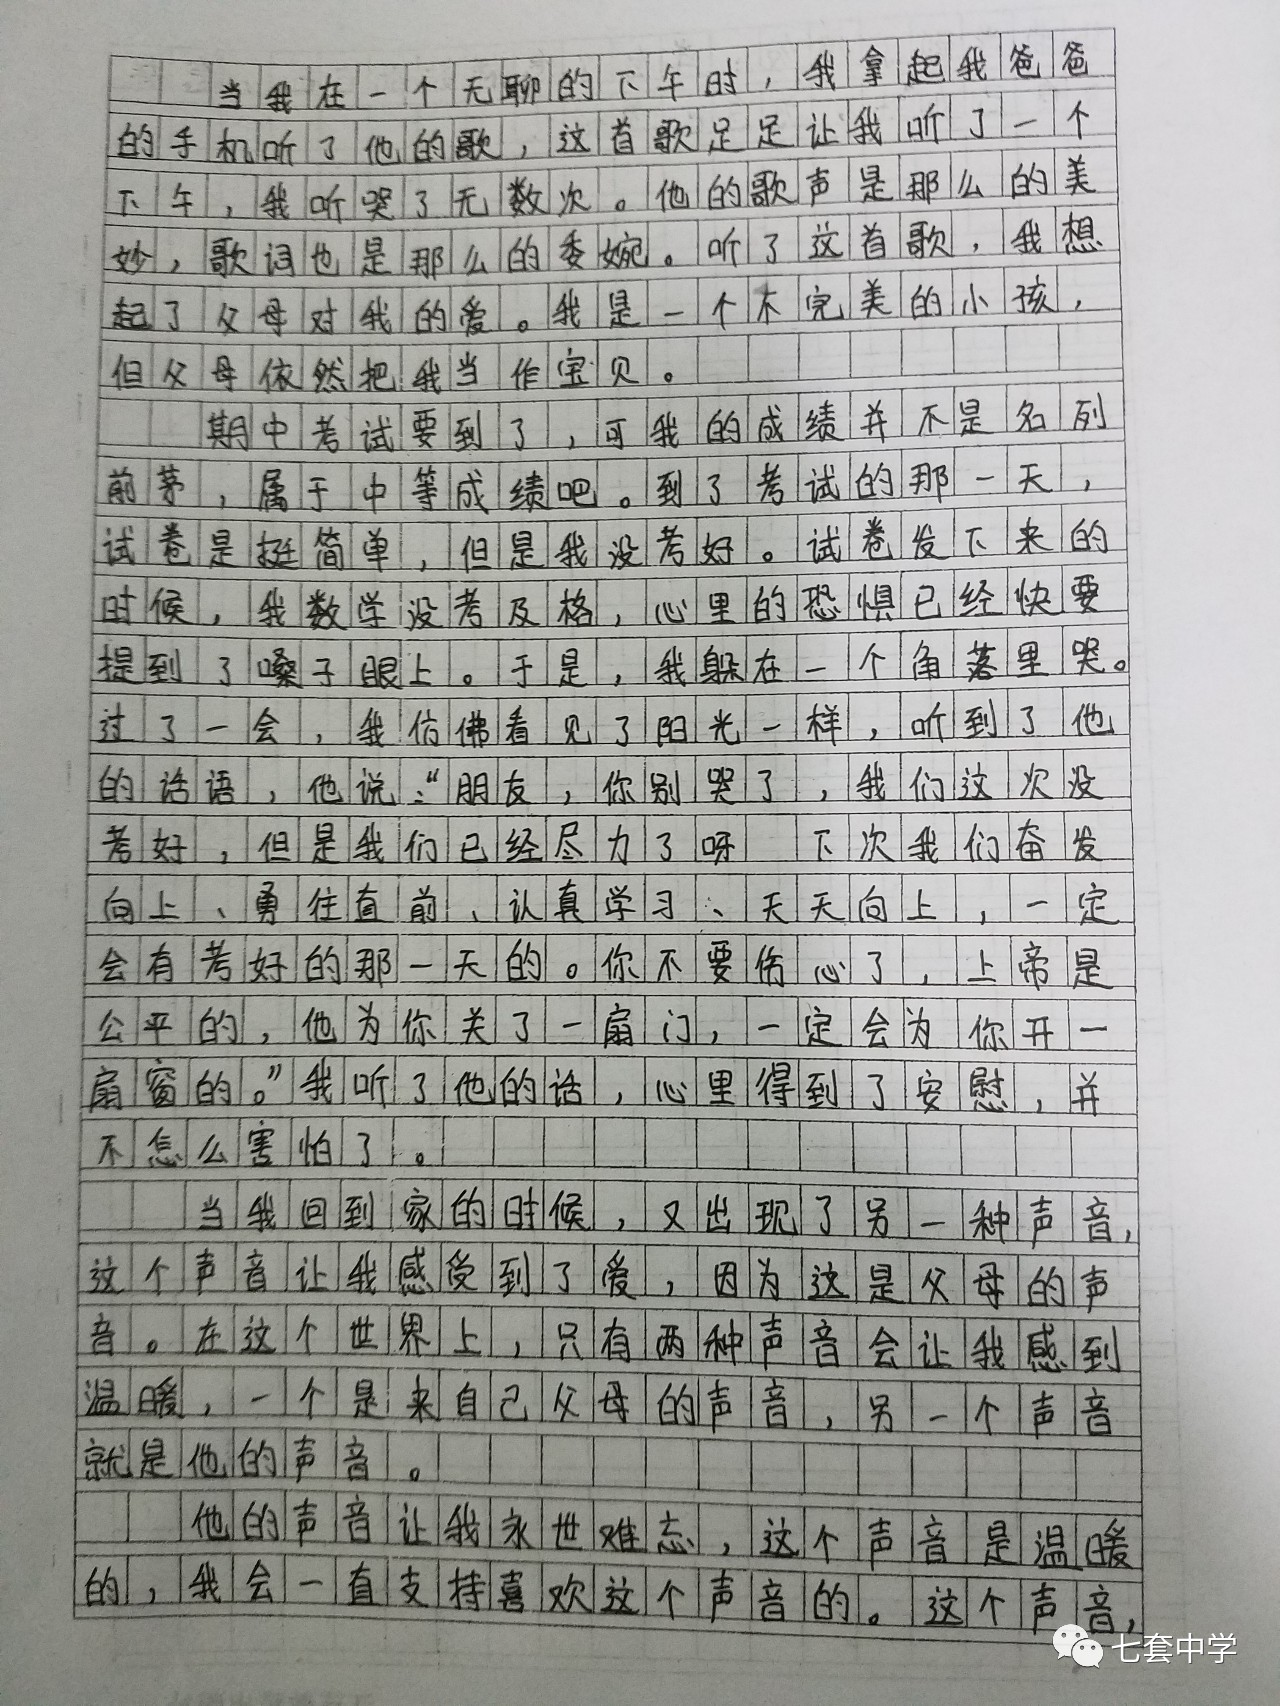 当我在一个无聊的下午时，我拿起我爸爸
的手机听了他的歌，这首歌足足让我听了一个
下午，我听哭了无数次。他的歌声是那么的美
妙，歌词也是那么的委婉。听了这首歌，我想
起了父母对我的爱。我是一个不完美的小孩，
但父母依然把我当作宝贝。
期中考试要到了，可我的成绩并不是名列
前茅，属于中等成绩吧。到了考试的那一天，
试卷是挺简单，但是我没考好。试卷发下来的
时候，我数学没考及格，心里的恐惧已经快要
提到了嗓子眼上。于是，我躲在一个角落里哭。
过了一会，我仿佛看见了阳光一样，听到了他
的话语，他说：“朋友，你别哭了，我们这次没
考好，但是我们已经尽力了呀 下次我们奋发
向上、勇往直前、认真学习、天天向上，一定
会有考好的那一天的。你不要伤心了，上帝是
公平的，他为你关了一扇门，一定会为你开一
扇窗的。”我听了他的话，心里得到了安慰，并
不怎么害怕了。
当我回到家的时候，又出现了另一种声音，
这个声音让我感受到了爱，因为这是父母的声
音。在这个世界上，只有两种声音会让我感到
温暖，一个是来自己父母的声音，另一个声音
就是他的声音。
他的声音让我永世难忘，这个声音是温暖
的，我会一直支持喜欢这个声音的。这个声音，
七套中学